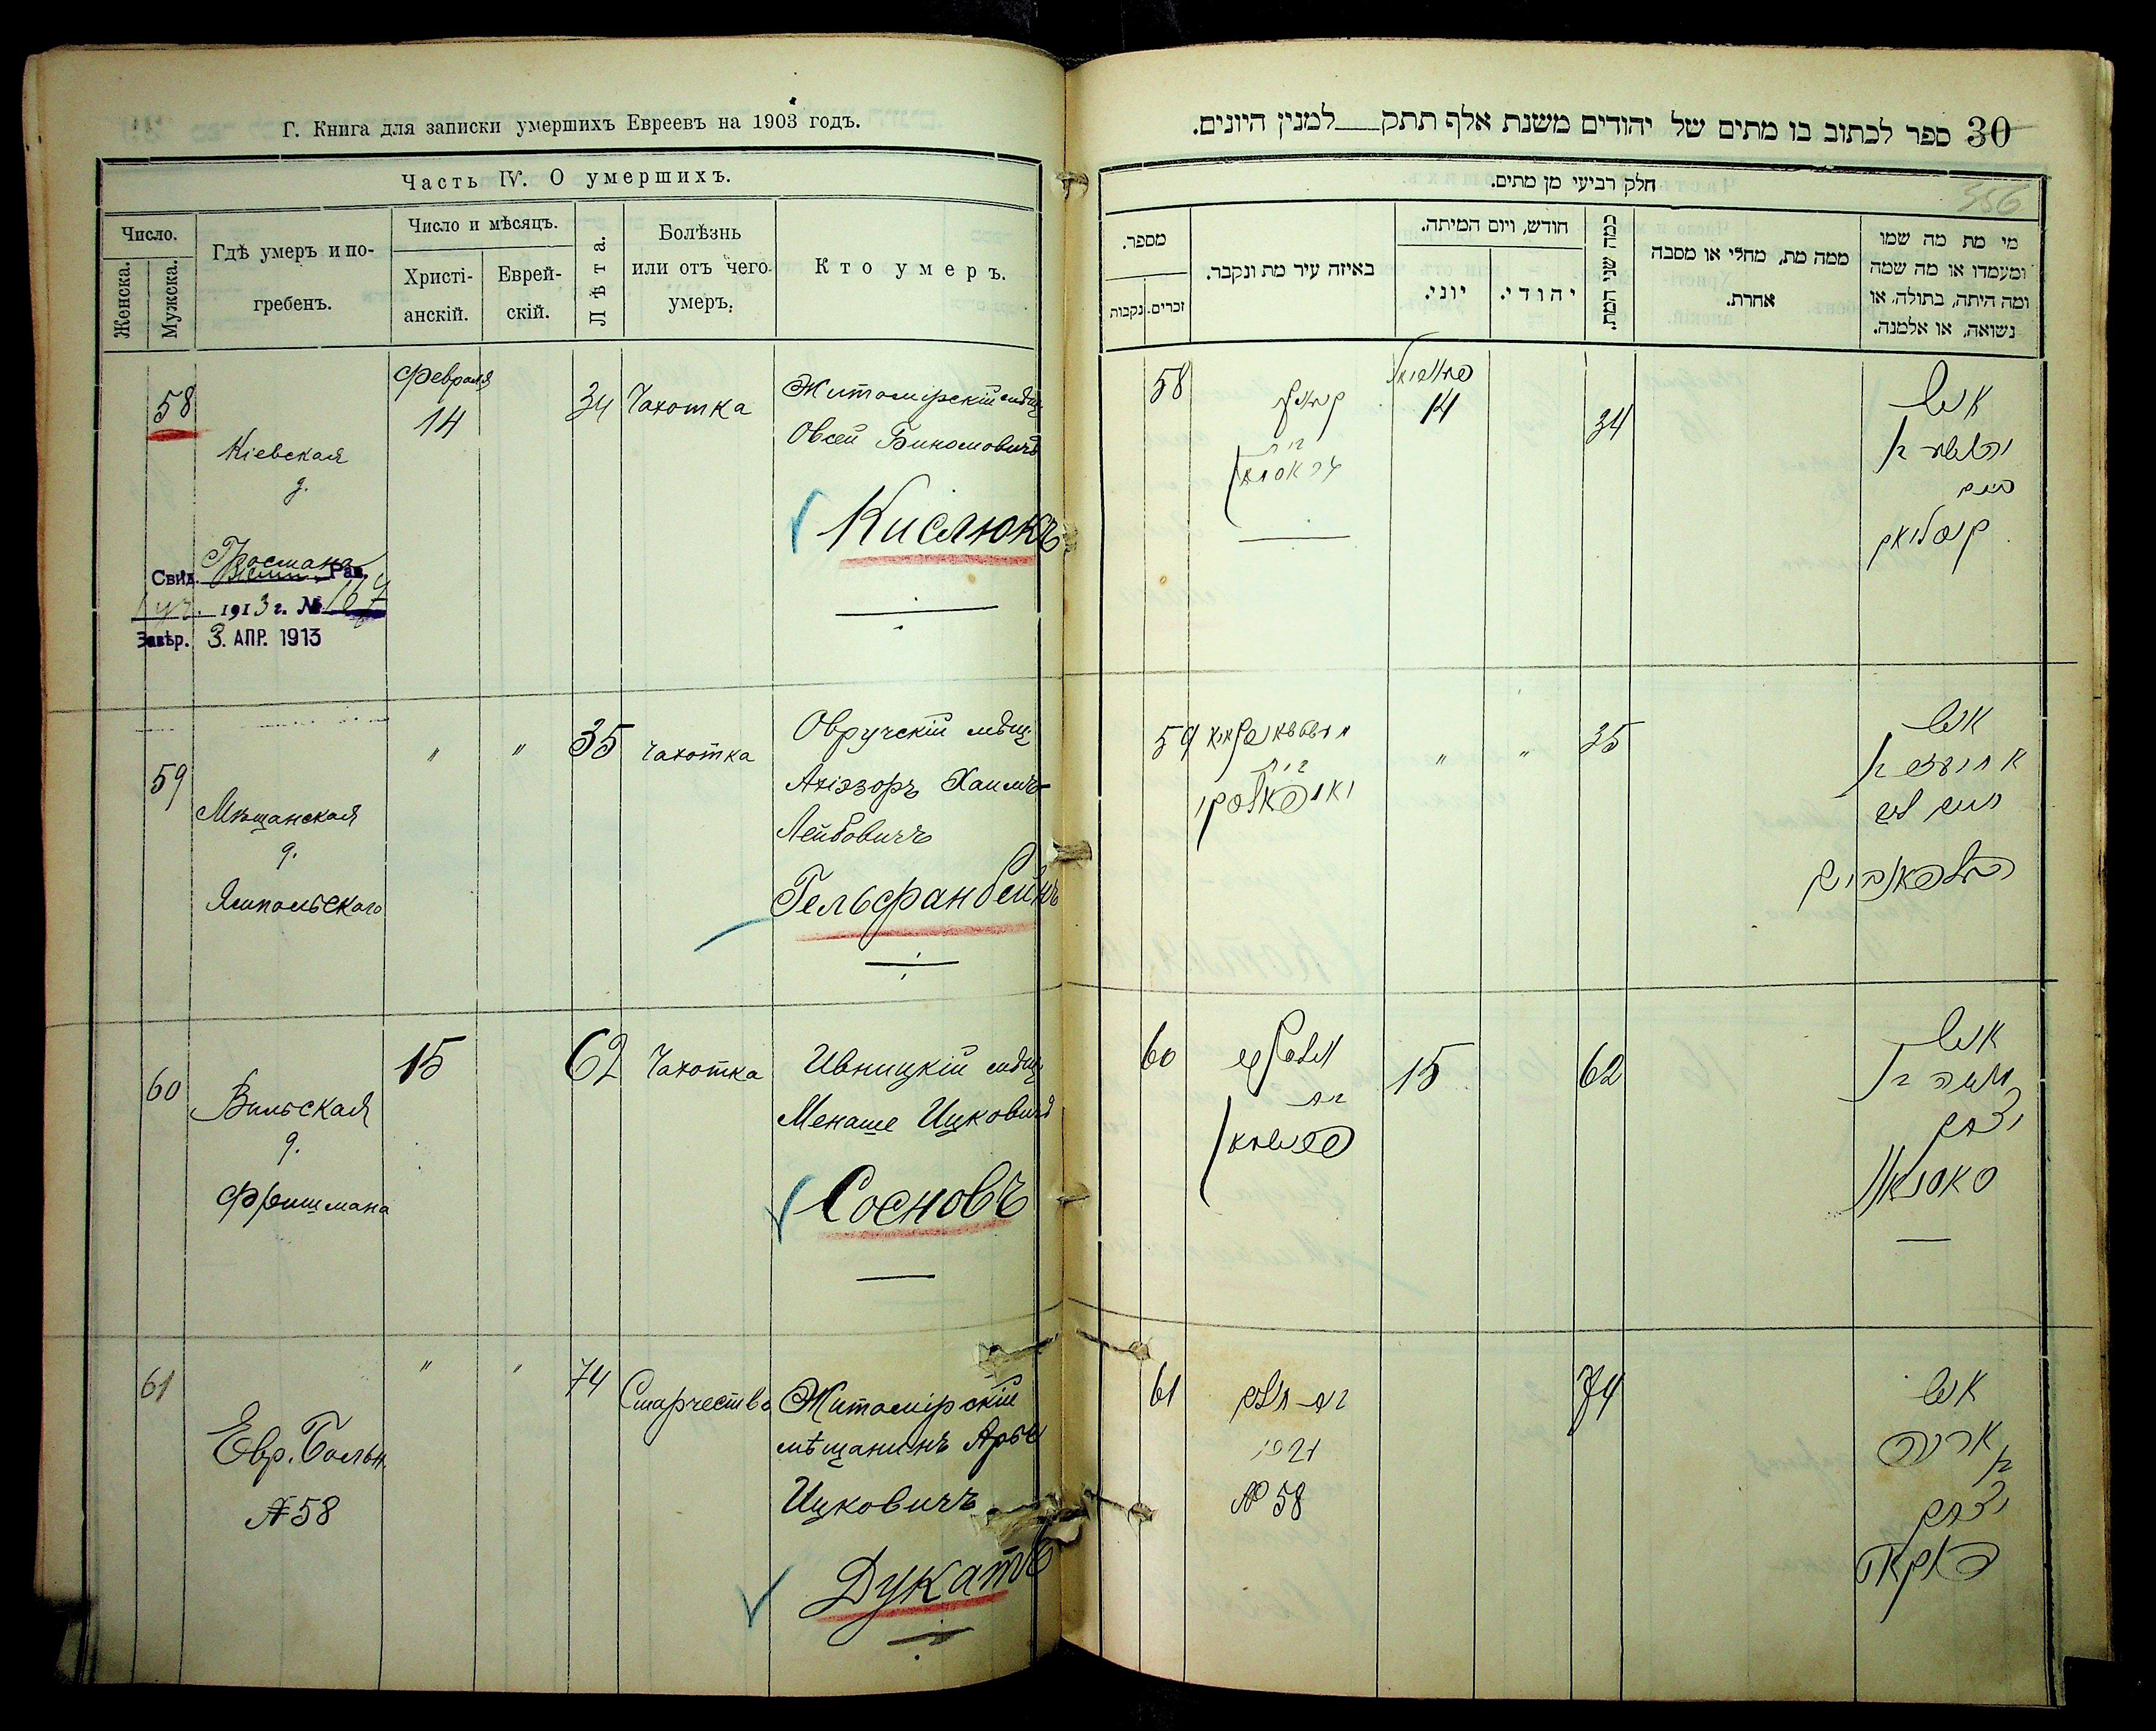 Г. Книга для записки умершихъ Евреевъ на 1903 годъ.
Часть IV. О умершихъ.
Число.
Женска.
Мужска.
Гдѣ умеръ и по-
гребенъ.
Число и мѣсяцъ.
Христі-
анскій.
Еврей-
скій.
Лѣта.
Болѣзнь
или отъ чего
умеръ.
Кто умеръ.
58
Кіевская
д.
Свид. Рав.
1913 г. №
Завѣр. 3. АПР. 1913
Февраля
14
34
Чахотка
Житомірскій мѣщ
Овсей Биномовичъ
Кислюкъ
59
Мѣщанская
д.
Ямпольскаго
"
"
35
Чахотка
Овручскій мѣщ.
Ахіэзоръ Хаимъ-
Лейбовичъ
Гельфанбейнъ
60
Вильская
д.
Фришмана
15
62
Чахотка
Ивницкій мѣщ
Менаше Ицковичъ
Сосновъ
61
Евр. Больн.
№ 58
"
"
74
Старчество
Житомірскій
мѣщанинъ Арье
Ицковичъ
Дукатъ
30 ספר לכתוב בו מתים של יהודים משנת אלף תתק למנין היונים.
356
חלק רביעי מן מתים.
מספר.
זכרים.
נקבות
באיזה עיר מת ונקבר.
חודש, ויום המיתה.
יוני.
יהודי.
כמה שני המת.
ממה מת, מחלי או מסבה
אחרת.
מי מת מה שמו
ומעמדו או מה שמה
ומה היתה, בתולה, או
נשואה, או אלמנה.
58
בית
14
34
איש
קיסליוק
59
בית
"
"
35
איש
חיים ליב
העלפאנביין
60
בית
פרישמאן
15
62
איש
מנשה בן
יצחק
סאסנאוו
61
בית חולים
№ 58
74
איש
אריה
בן
יצחק
דוקאט